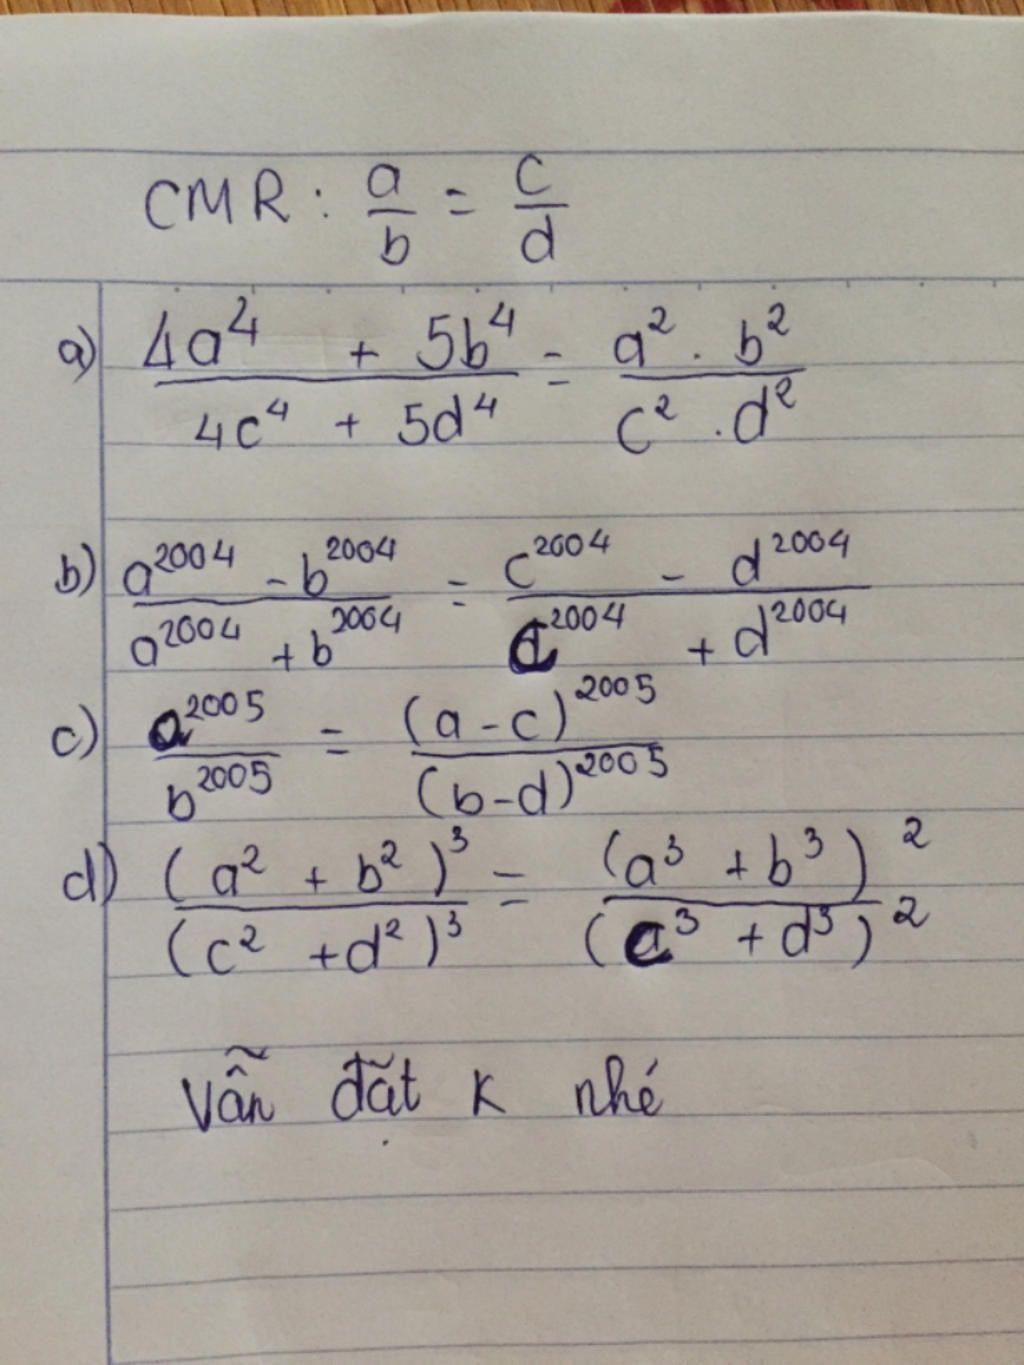 CMR: a/b = c/d
a) (4a⁴ + 5b⁴)/(4c⁴ + 5d⁴) = (a² . b²)/(c² . d²)
b) (a²⁰⁰⁴ - b²⁰⁰⁴)/(a²⁰⁰⁴ + b²⁰⁰⁴) = (c²⁰⁰⁴ - d²⁰⁰⁴)/(c²⁰⁰⁴ + d²⁰⁰⁴)
c) a²⁰⁰⁵/b²⁰⁰⁵ = (a - c)²⁰⁰⁵/(b - d)²⁰⁰⁵
d) (a² + b²)³/(c² + d²)³ = (a³ + b³)²/(c³ + d³)²
Vẫn đặt k nhé